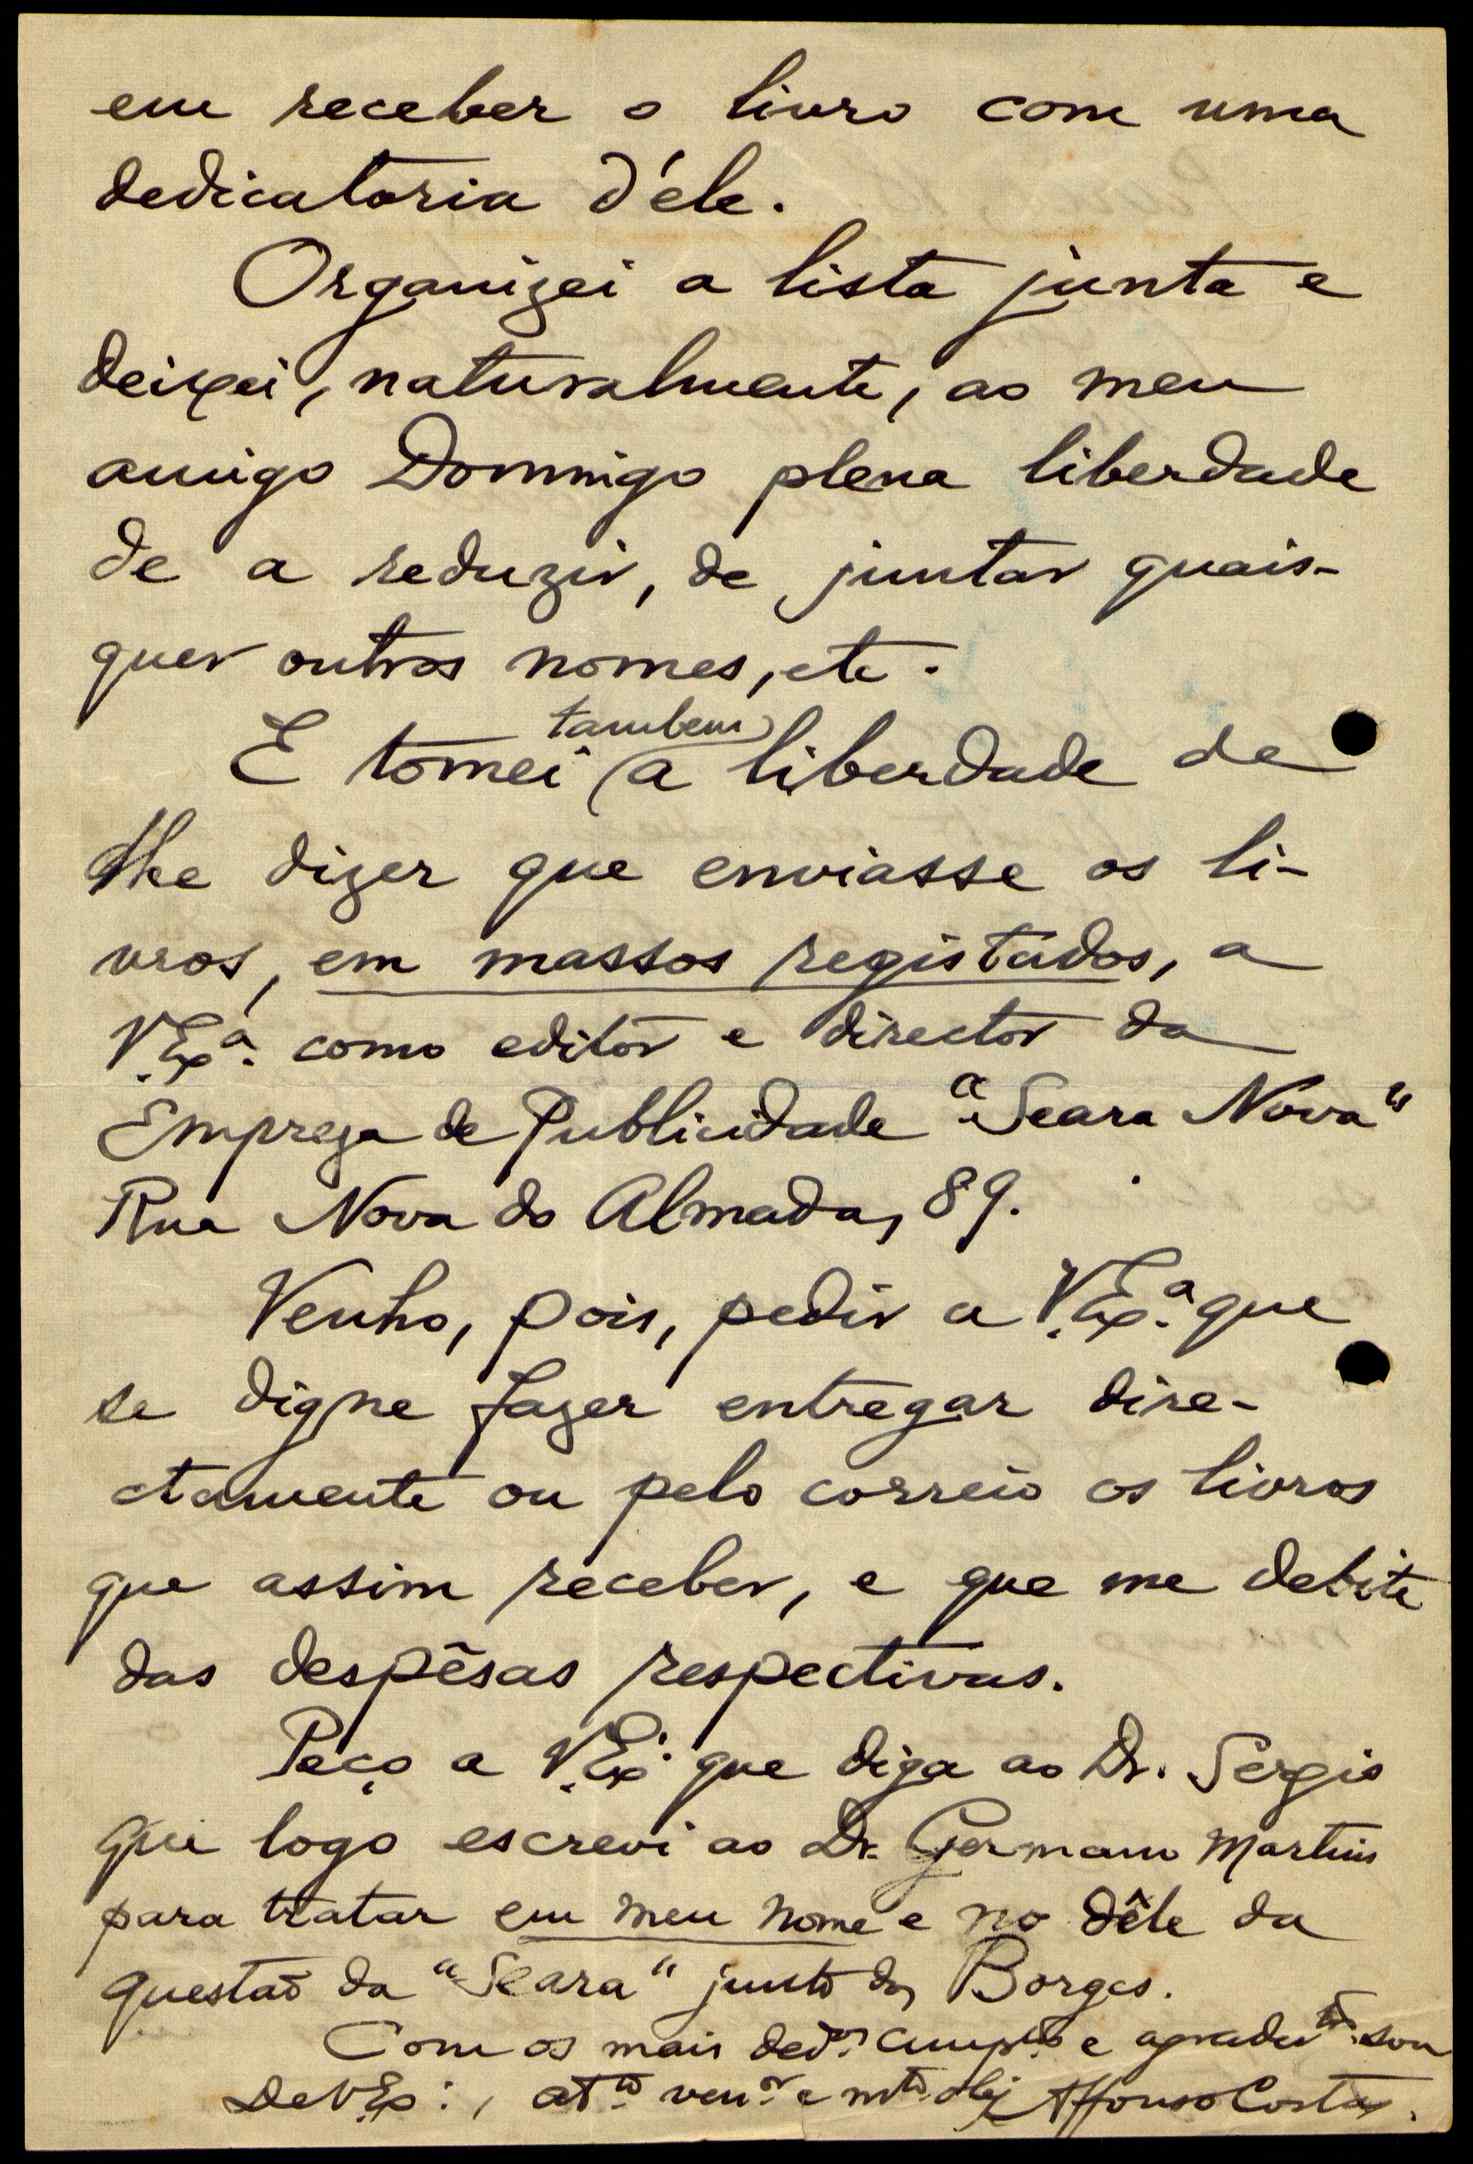 em receber o livro com uma
dedicatoria d'éle.
Organizei a lista junta e
deixei, naturalmente, ao meu
amigo Domingo plena liberdade
de a reduzir, de juntar quais-
quer outros nomes, etc.
E tomei tambem a liberdade de
lhe dizer que enviasse os li-
vros, em massos registados, a
V. Exª. como editor e director da
Empreza de Publicidade "Seara Nova"
Rua Nova do Almada, 89.
Venho, pois, pedir a V. Exª. que
se digne fazer entregar dire-
ctamente ou pelo correio os livros
que assim receber, e que me debite
das despêsas respectivas.
Peço a V. Exª. que diga ao Dr. Sergio
que logo escrevi ao Dr. Germano Martins
para tratar em meu nome e no dêle da
questão da "Seara" junto dos Borges.
Com os mais dev.os cump.tos e agradec.tos sou
De V. Exª., at.to ven.or e mt.o obg. Affonso Costa.